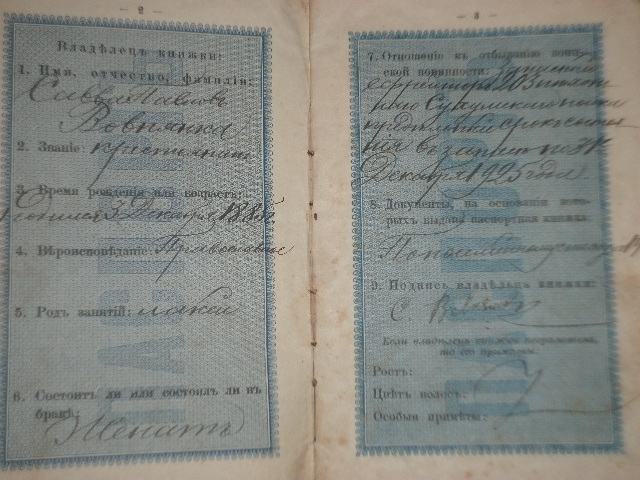 — 2 —
Владѣлецъ книжки:
1. Имя, отчество, фамилія:
Савва Павловъ
Вовнянка
2. Званіе: крестьянинъ
3. Время рожденія или возрастъ:
Родился 3 Декабря 1885 г.
4. Вѣроисповѣданіе: Православное
5. Родъ занятій: лакей
6. Состоитъ ли или состоялъ ли въ
бракѣ:
Женатъ
— 3 —
7. Отношеніе къ отбыванію воин-
ской повинности:
ефрейторъ 203 пѣхот
наго Сухумскаго полка
срокъ состоя
нія въ запасѣ по 31
Декабря 1925 года
8. Документы, на основаніи кото-
рыхъ выдана паспортная книжка:
9. Подпись владѣльца книжки:
С
Если владѣлецъ книжки неграмотенъ,
то его примѣты:
Ростъ:
Цвѣтъ волосъ:
Особыя примѣты: